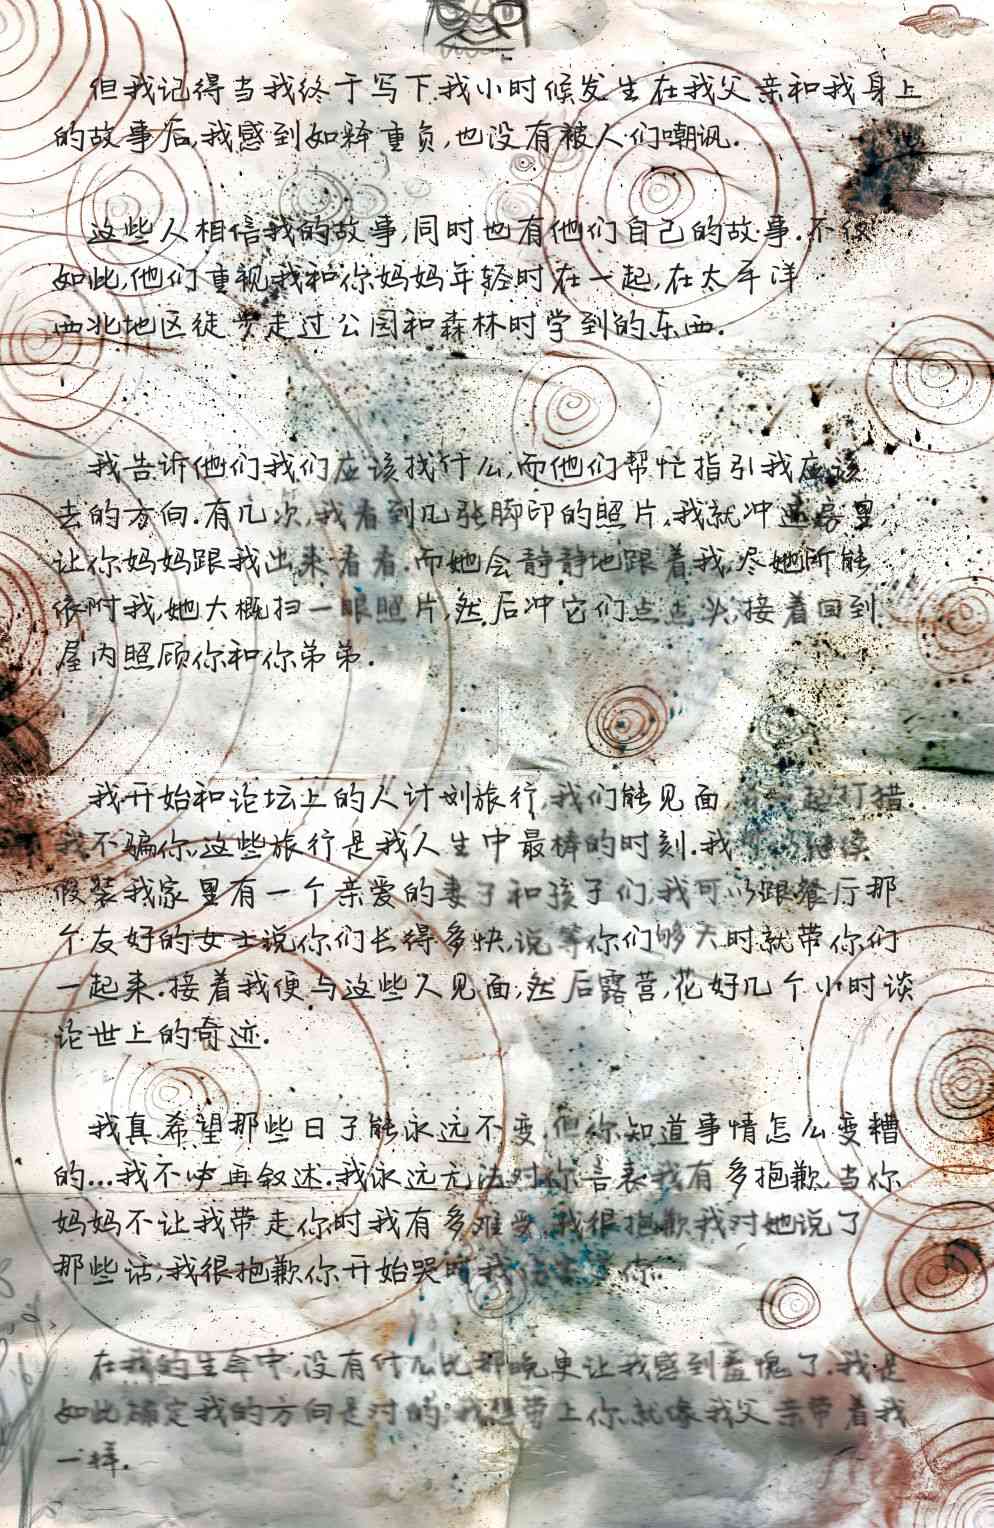 但我记得当我终于写下我小时候发生在我父亲和我身上
的故事后,我感到如释重负,也没有被人们嘲讽.
这些人相信我的故事,同时也有他们自己的故事.不仅
如此,他们重视我和你妈妈年轻时在一起,在太平洋
西北地区徒步走过公园和森林时学到的东西.
我告诉他们我们应该找什么,而他们帮忙指引我应该
去的方向.有几次,我看到几张脚印的照片,我就冲进房里,
让你妈妈跟我出来看看.而她会静静地跟着我,尽她所能
依附我,她大概扫一眼照片,然后冲它们点点头,接着回到
屋内照顾你和你弟弟.
我开始和论坛上的人计划旅行,我们能见面,起打猎.
我不骗你,这些旅行是我人生中最棒的时刻.我继续
假装我家里有一个亲爱的妻子和孩子们,我可以跟餐厅那
个友好的女士说你们长得多快,说等你们够大时就带你们
一起来.接着我便与这些人见面,然后露营,花好几个小时谈
论世上的奇迹.
我真希望那些日子能永远不变.但你知道事情怎么变糟
的...我不必再叙述.我永远无法对你告表我有多抱歉,当你
妈妈不让我带走你时我有多难受.我很抱歉我对她说了
那些话,我很抱歉你开始哭时我你.
在我的生命中,没有什么比那晚更让我感到羞愧了.我是
如此确定我的方向是对的.我想带上你,就像我父亲带着我
一样.